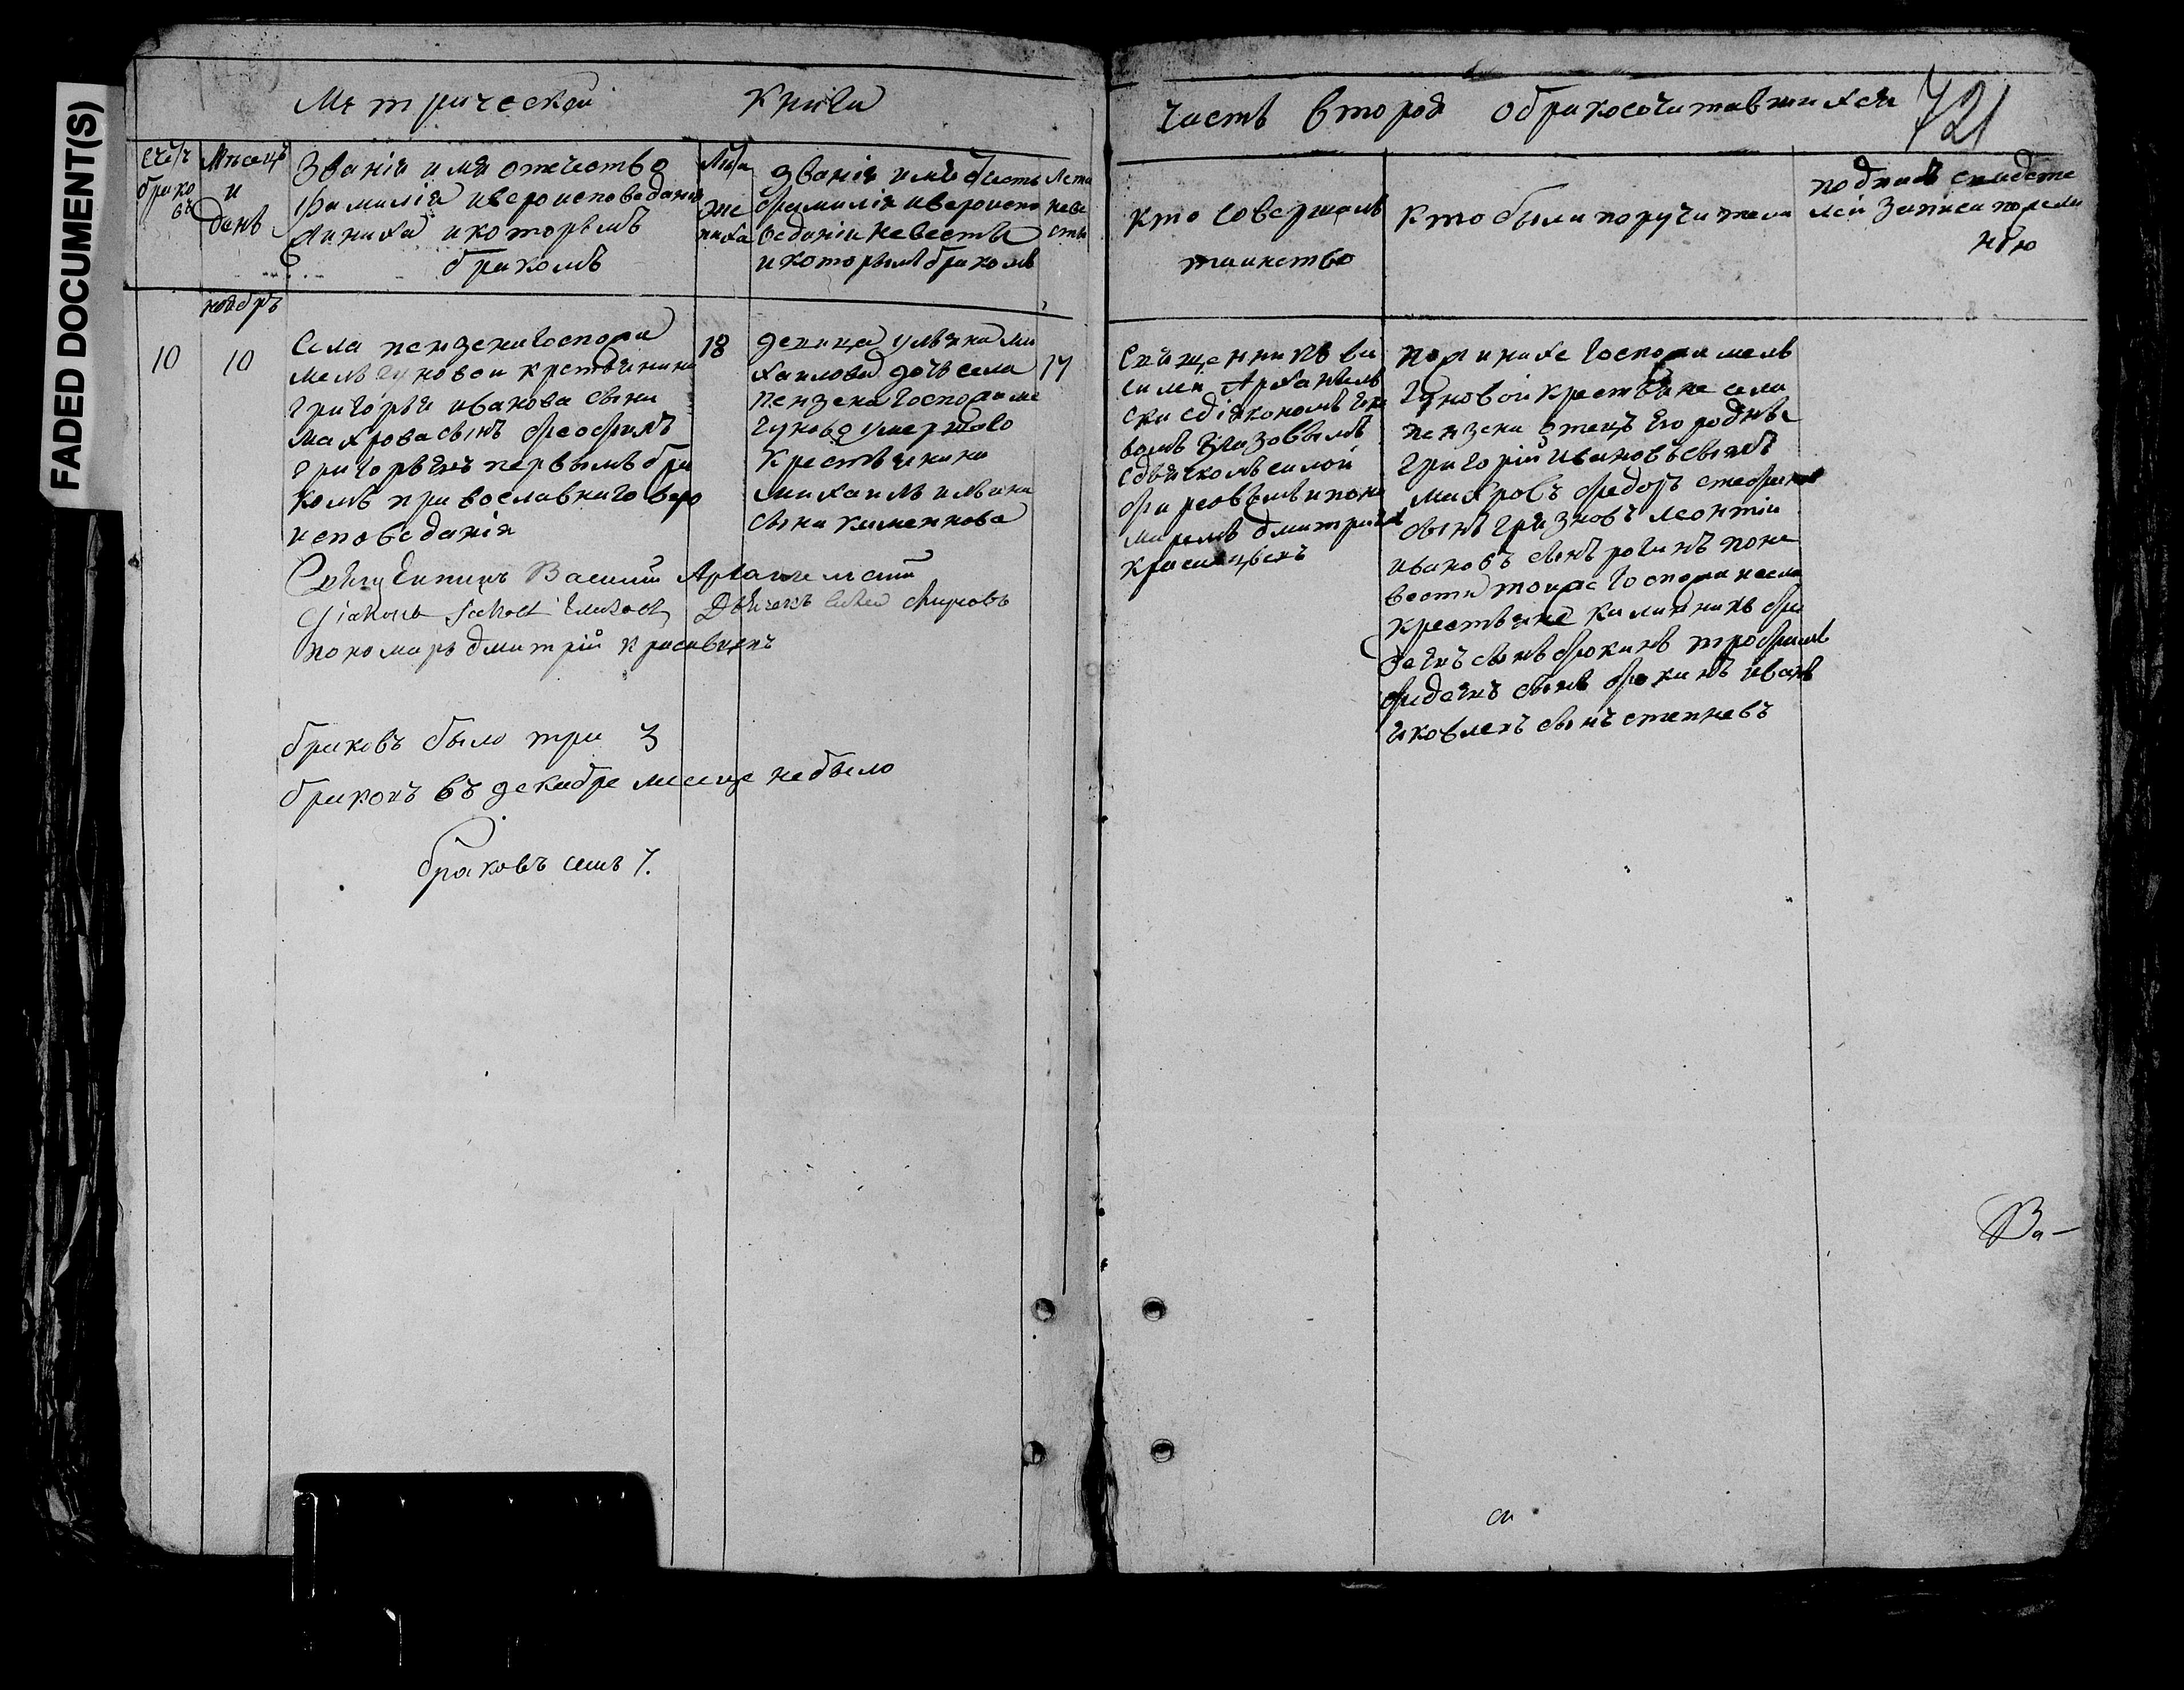 FADED DOCUMENT(S)
Метрической Книги
часть вторая обракосочитавшихся
721
счетъ браковъ
Месецъ и день
Звания имя отчество
фамилия ивероисповедания
жениха икоторымъ
бракомъ
Лета жениха
звания имя отчеств
фамилия иверопспо
ведания невесты
икоторымъ бракомъ
Лета невесты
кто совершалъ
таинство
Кто были поручители
подписъ свидете
лей записи пожела
нию
ноябръ
10
10
Села пензена Госпожи
Мельгуновой крестьянина
григорья иванова сына
Махрова сынъ феофилъ
григорьевъ первымъ бра
комъ православнаго веро
исповедания
18
девица ульяна Ми
хаилова дочь села
пензена Госпожи ме
гуновой умершаго
крестьянина
михаилъ ильина
сына каменнова
17
Священникъ Ва
силей Архангель
ски сдіякономъ Яко
вомъ
сдьячкомъ силой
и поно
маремъ дмитрий
красавцевъ
по женихе Госпожи мель
гуновой крестьяне села
пензена отецъ его родные
григорий ивановъ сынъ
махровъ федоръ
сынъ грязновъ леонтий
ивановъ сынъ рогинъ поне
весте тояже Госпожи села
крестьяне калинникъ фа
деевъ сынъ фокинъ трофимъ
фадеевъ сынъ фокинъ иванъ
яковлевъ сынъ степневъ
Священникъ Василий Архангельский
Діаконъ Іаковъ Дьячекъ
пономаръ дмитрий красавцевъ
браковъ было три 3
браковъ въ декабре месице небыло
браковъ семь 7.
Ва-